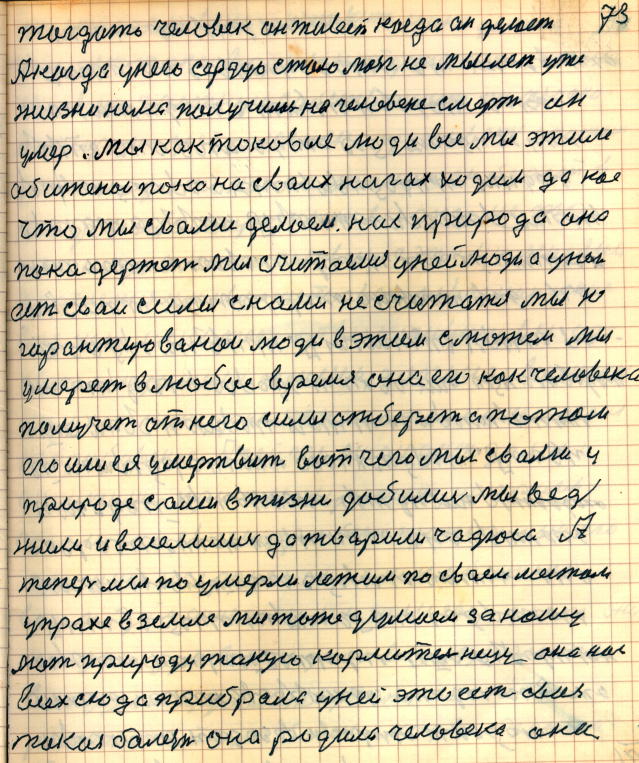 73
тогдать человек он живет когда он делает
А когда унего сердцо стало мозг не мыслет уже
жизни нема получилась на человеке смерт он
умер. Мы как токовые люди все мы этим
обиженои пока на своих нагах ходим да кое
что мы свами делаем. нас природа она
пока держет мы считаемся у ней люди а уны
ест сваи силы снами не считатя мы н
гарантированои люди в этим сможем мы
умерет в любое время она его как человека
получет от него силы отберет а потом
его или ея умертвит вот чего мы свами у
природе сами в жизни добилис мы вед
жили и веселилис дотварили чадоса А
тепер мы по умерли лежим по сваем местам
упрахе в земле мы тоже думаем за нашу
мот природу такую кормителнецу она нас
всех сюда прибрала у ней это ест своя
такая балезн она родила человека она